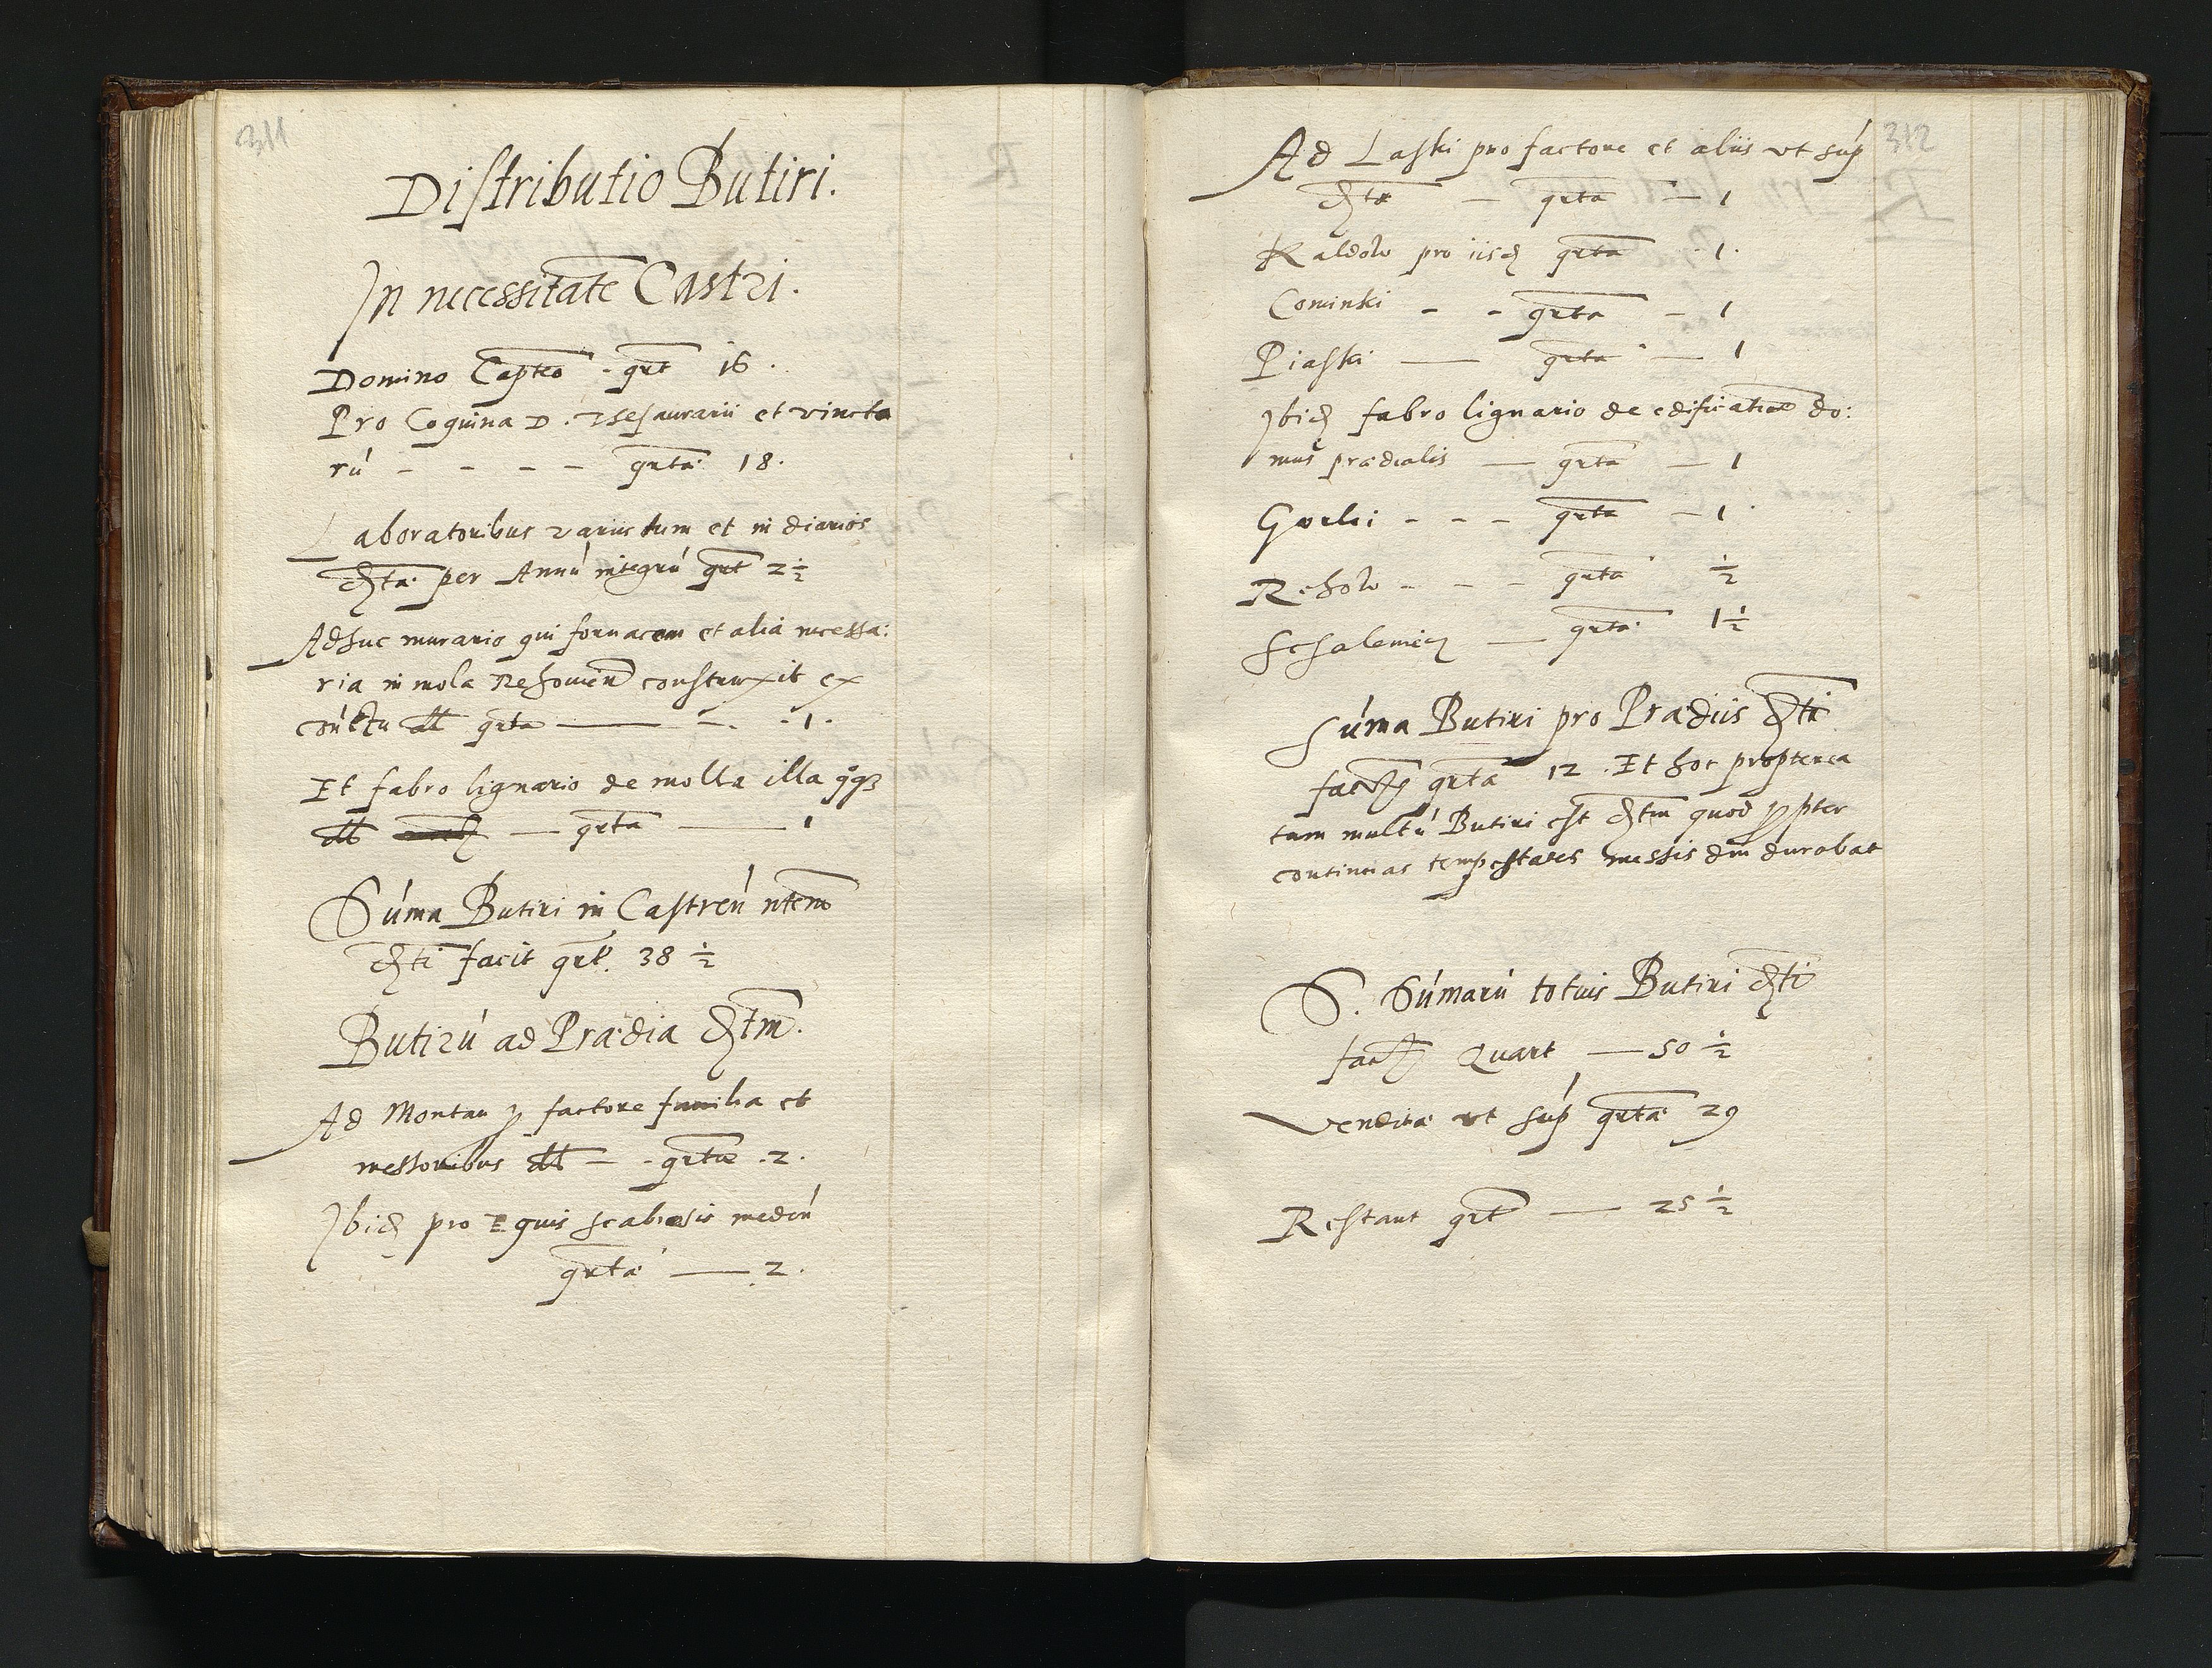 311
Distributio Butiri.
In necessitate Castri.
Domino Capteo - qrt 16.
Pro Coquina D. Tsesaurarii et vincto
rú - - - - qrta 18.
Laboratoribus variis tum et in diarios
dta per Annú integrú qrt 2 1/2
Adhuc murario qui fornacem et alia necessa:
ria in mola construxit ex
dt qrta — - . - 1.
Et fabro lignario de molla illa qqз
dt — qrta — 1
Súma Butiri in Castreú
dti facit qrt. 38 1/2
Butirú ad Prædia dtm.
Ad Montau p factore familia et
messoribus dt - - qrta .2.
Ibid pro Equis scabiosis
qrta — 2.
312
Ad Laski pro factore et aliis vt súp
dta — qrta — 1
Kaldow pro iisd qrta 1.
Cominki - - qrta - 1
Piaski — qrta — 1
Ibid fabro lignario de edificatione do:
mus prædialis — qrta — 1
Gorki - - - qrta - 1.
Rehow - - - qrta 1/2
— qrta 1 1/2
Súma Butiri pro Prædiis dti
qrta 12. Et hoc propterea
tam multú Butiri est dtm quod ppter
continuas tempestates messis diu durabat
S. Súmarú totius Butiri dti
Quart — 50 1/2
Vendita vt súp qrta 29
Restant qrt — 25 1/2